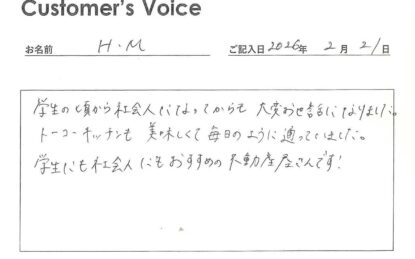 Customer's Voice
お名前 H・M ご記入日 2026年 2月 21日
学生の頃から社会人になってからも 大変お世話になりました。
トーコーキッチンも 美味しくて毎日のように通っていました。
学生にも社会人にもおすすめの不動産屋さんです!